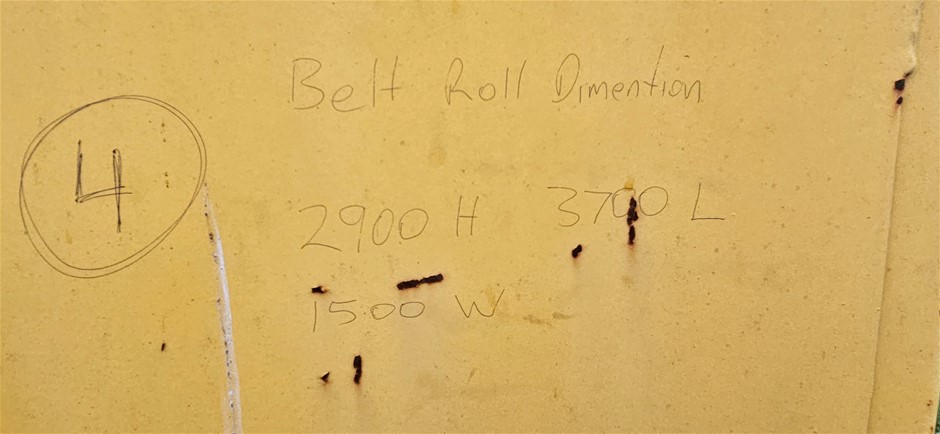 Belt Roll Dimention
4
2900 H 3700 L
1500 W